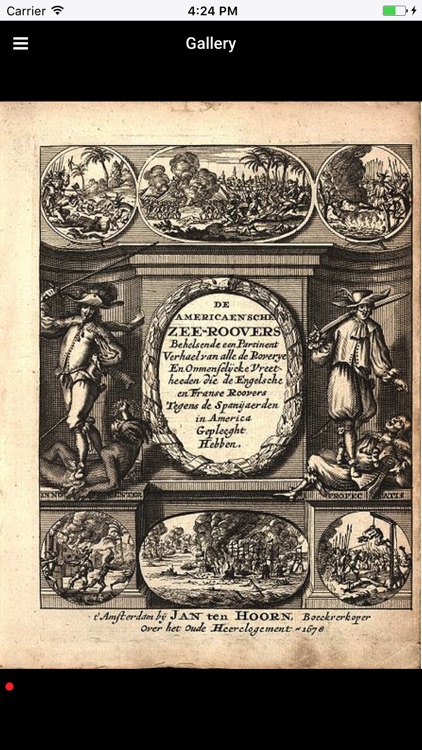 Carrier 4:24 PM
Gallery
DE
AMERICAENSCHE
ZEE-ROOVERS
Behelsende een Pertinent
Verhael van alle de Roverye
En Onmenselycke Vreet-
heeden die de Engelsche
en Franse Roovers
Tegens de Spanjaerden
in America
Gepleeght
Hebben.
PROPEC ATIS
t'Amsterdam by JAN ten HOORN, Boeckverkoper
Over het Oude Heerelogement 1678